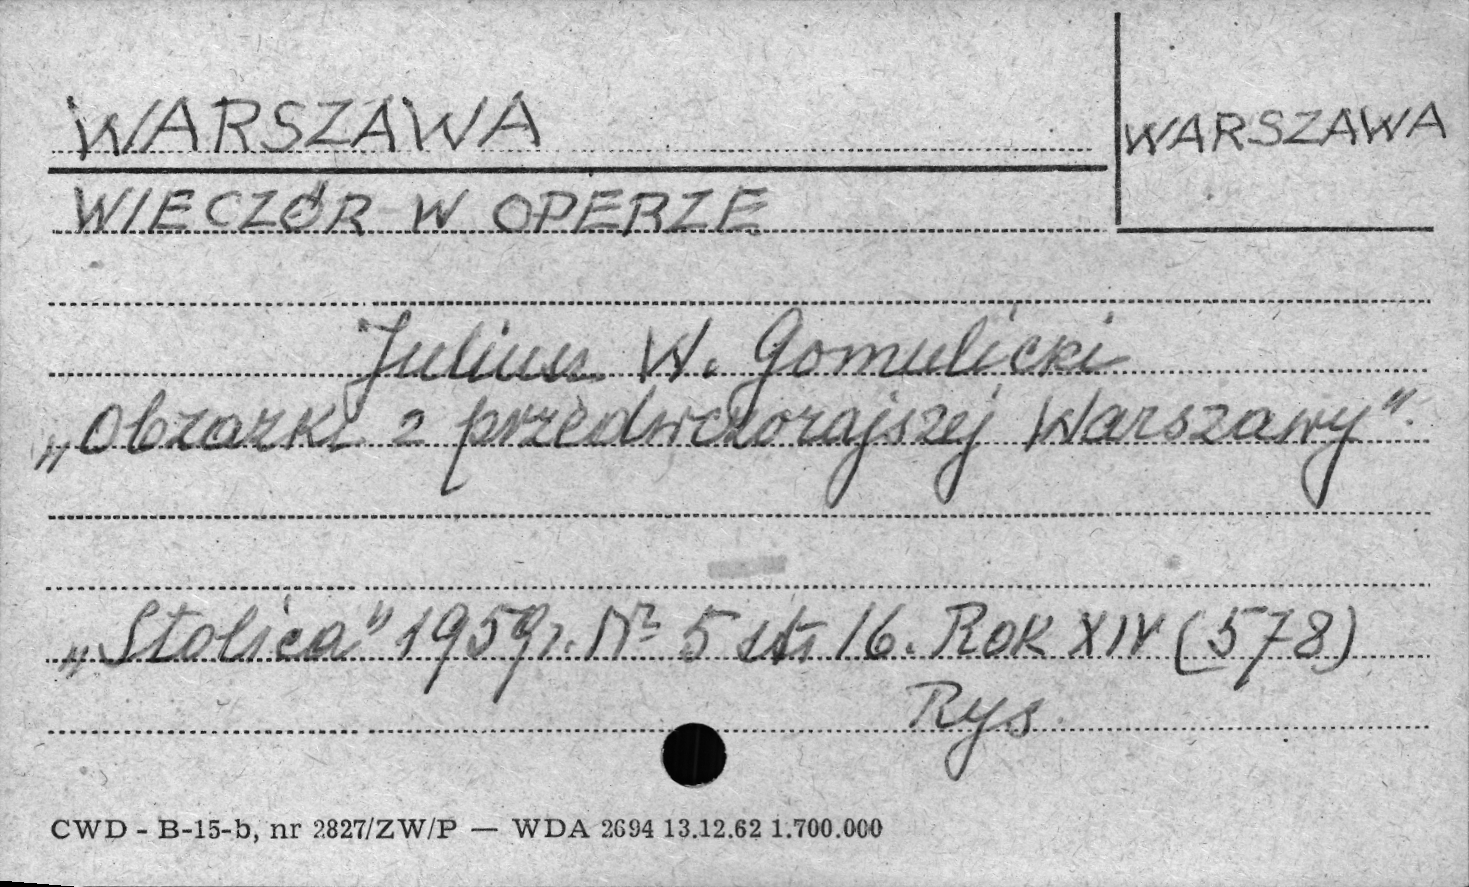 WARSZAWA
WARSZAWA
WIECZÓR W OPERZE
Juliusz W. Gomulicki
„Obrazki z przedwczorajszej Warszawy".
„Stolica" 1959 r. Nº 5 str 16. Rok XIV (578)
Rys.
CWD - B-15-b, nr 2827/ZW/P — WDA 2694 13.12.62 1.700.000